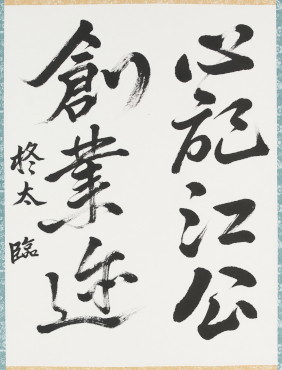 心記江公
創業迹
柊太 臨